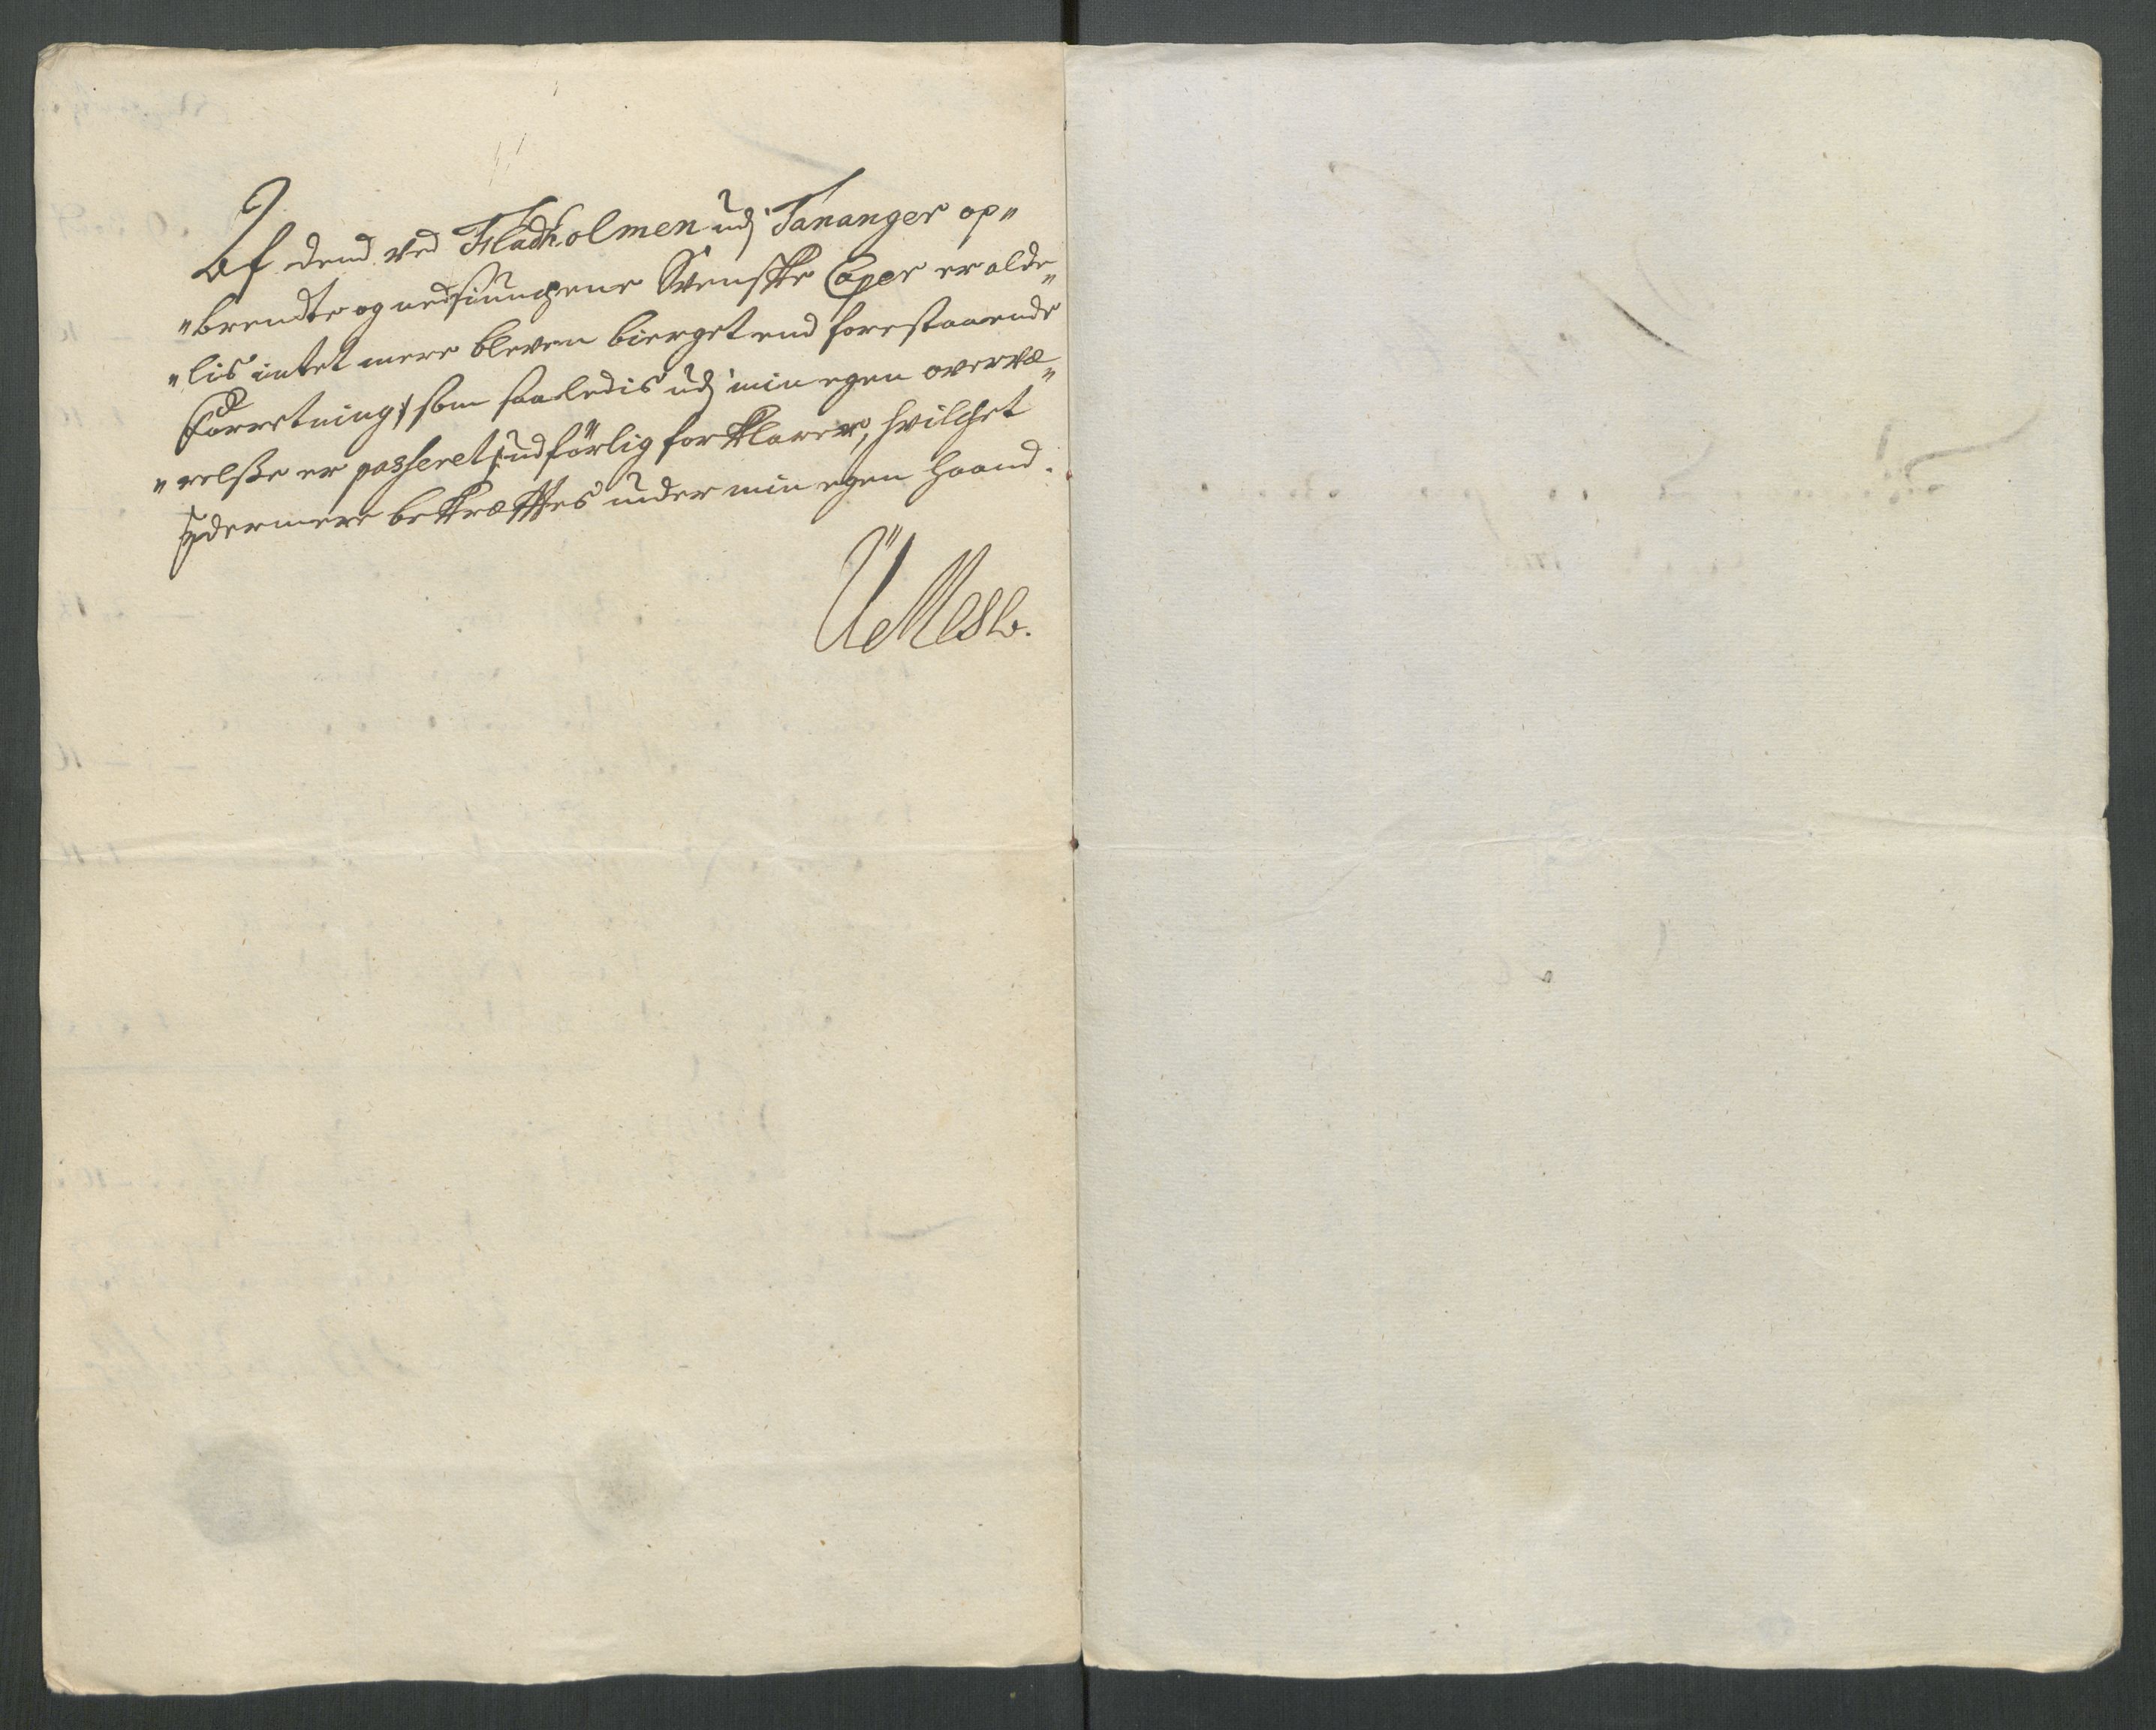 Af dend ved Fladholmen udj Tananger op„
„brendte og nedsiunchene Svenske Caper er alde„
„lis intet mere bleven bierget end forestaaende
Forretning |: som saaledis udj min egen overvæ„
„relsse er passeret :| udförlig forklarer, hvilchet
ydermere bekræfftes under min egen haand.